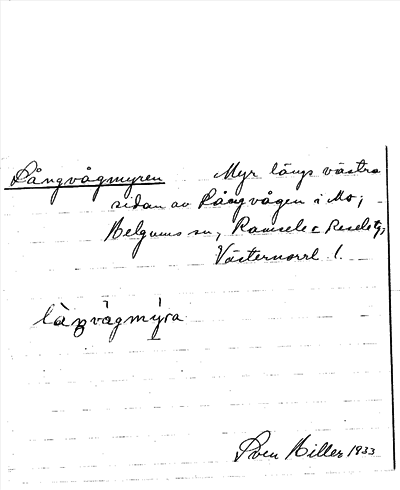 Långvågmyren Myr längs västra
sidan av Långvågen i Mo,
Helgums sn, Ramsele o Resele tg,
Västernorrl l.
làŋvågmýra
Sven Hillen 1933